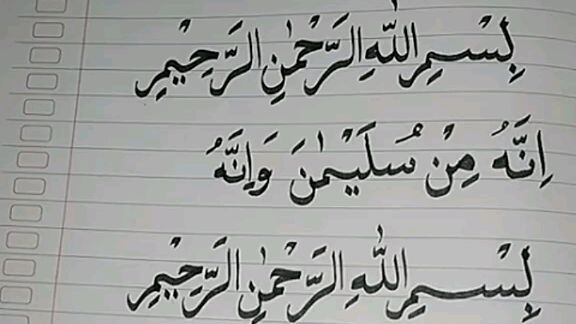 بِسْمِ اللّٰهِ الرَّحْمٰنِ الرَّحِيْمِ
اِنَّهُ مِنْ سُلَيْمٰنَ وَاِنَّهُ
بِسْمِ اللّٰهِ الرَّحْمٰنِ الرَّحِيْمِ